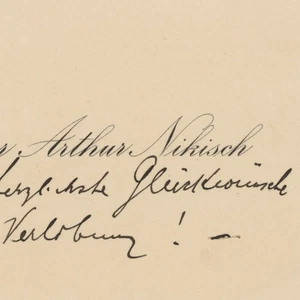 r Arthur Nikisch
herzlichste Glückwünsche
Verlobung! –